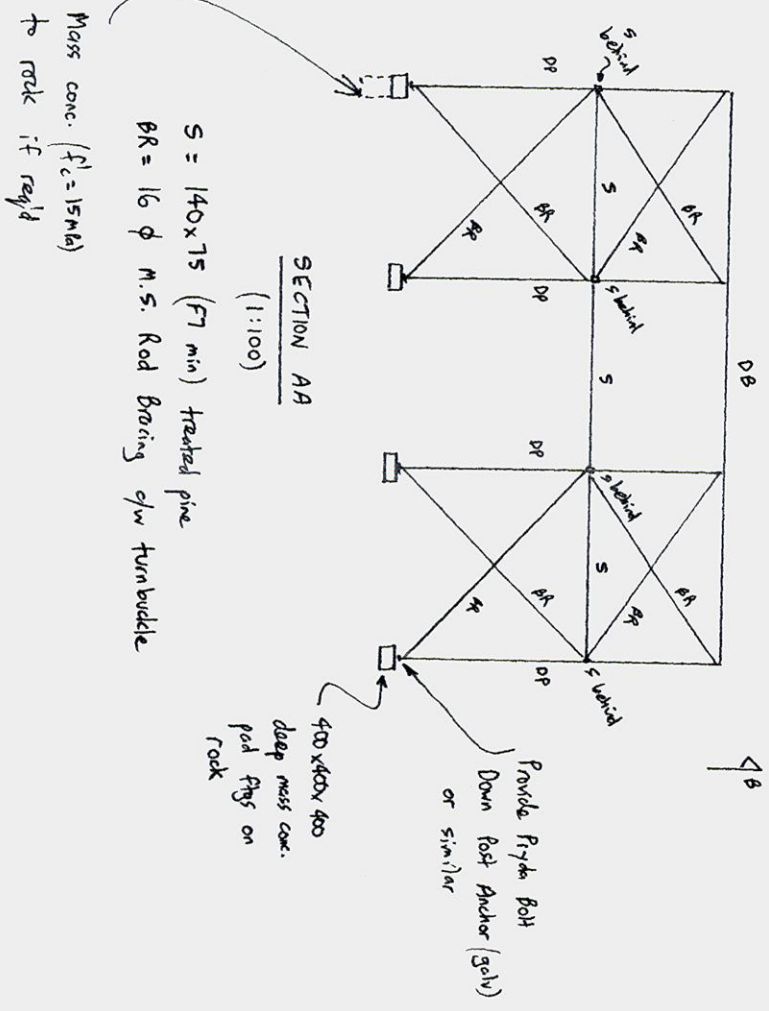 DB
B
DP
S behind
BR
BR
S
BR
BR
DP
S behind
S
DP
S behind
BR
BR
S
BR
BR
DP
S behind
Provide Pryda Bolt
Down Post Anchor (galv)
or similar
400x400x400
deep mass conc.
pad ftgs on
rock
SECTION AA
(1:100)
S = 140x75 (F7 min) treated pine
BR = 16 φ M.S. Rod Bracing c/w turnbuckle
Mass conc. (f'c = 15MPa)
to rock if req'd